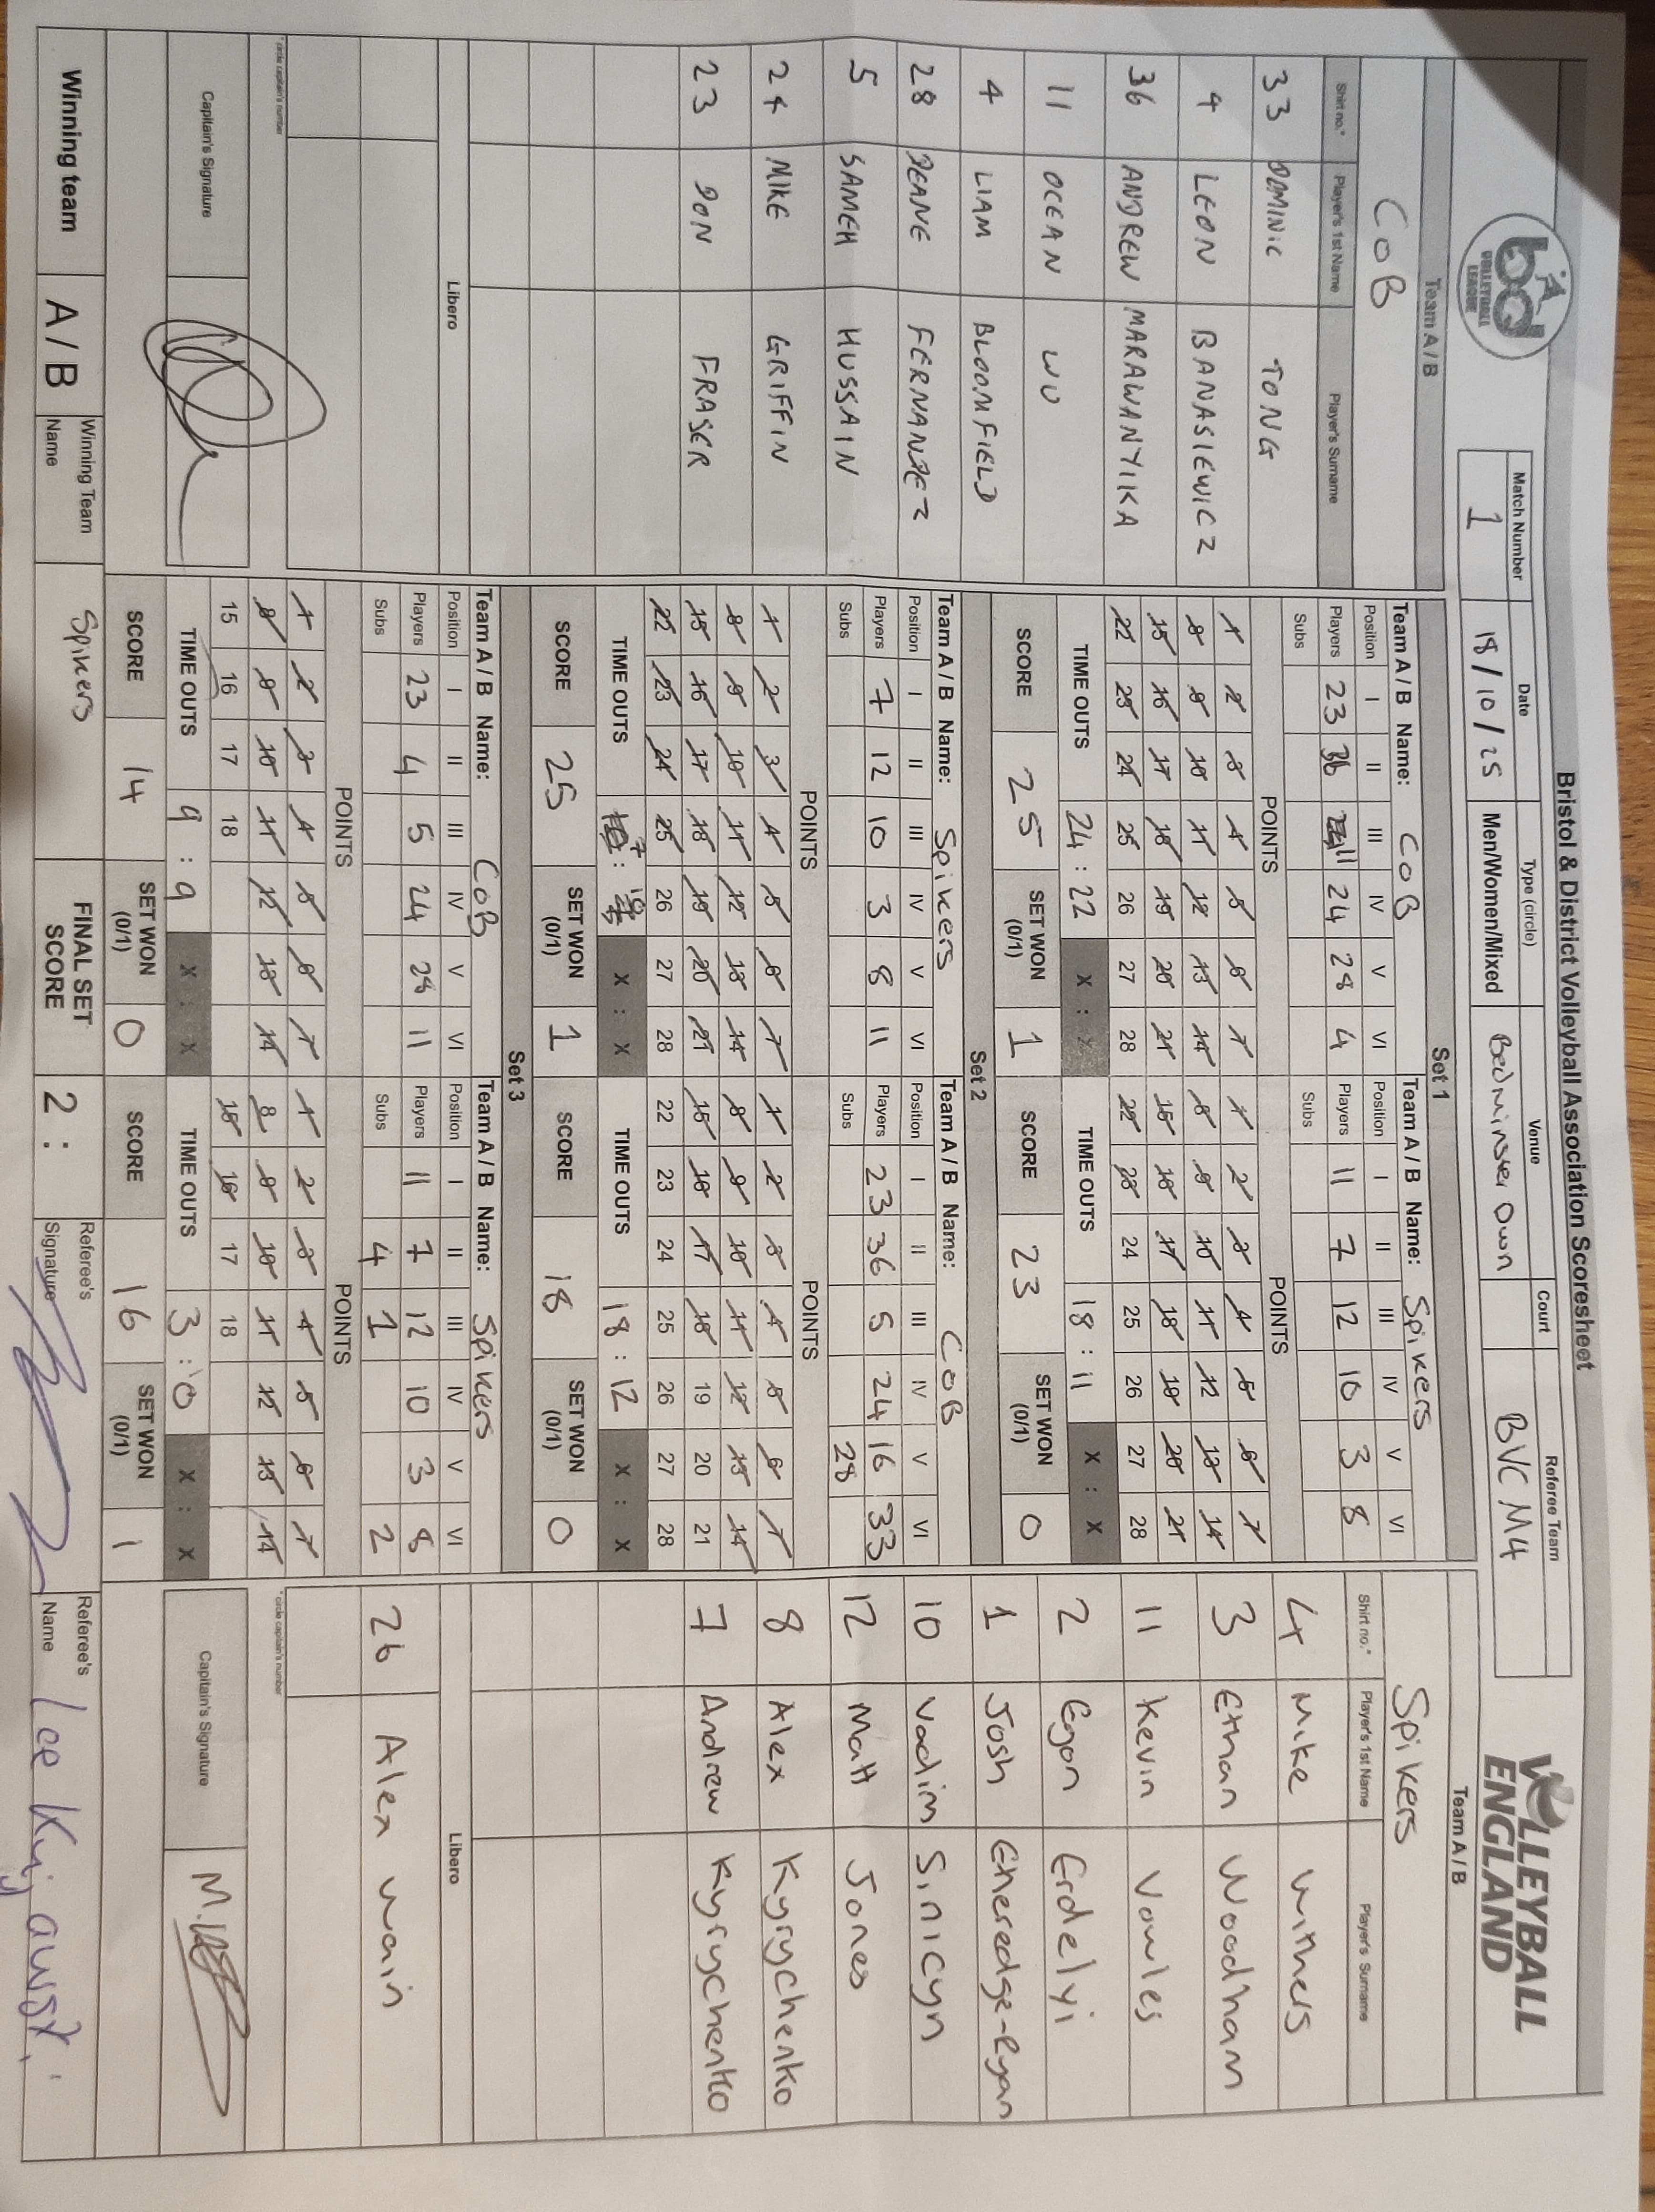 Bristol & District Volleyball Association Scoresheet
bd
VOLLEYBALL
LEAGUE
Match Number Date Type (circle) Venue Court Referee Team
1 18/10/25 Men/Women/Mixed Bedminster Down BVC M4
VOLLEYBALL
ENGLAND
Team A / B
CoB
Shirt no.* Player's 1st Name Player's Surname
33 DOMINIC TONG
4 LEON BANASIEWICZ
36 ANDREW MARAWANYIKA
11 OCEAN WU
4 LIAM BLOOMFIELD
28 DEANE FERNANDEZ
5 SAMEH HUSSAIN
24 MIKE GRIFFIN
23 DON FRASER
Libero
* circle captain's number
Capitain's Signature
Set 1
Team A / B Name: CoB
Position I II III IV V VI
Players 23 36 11 24 28 4
Subs
POINTS
1 2 3 4 5 6 7
8 9 10 11 12 13 14
15 16 17 18 19 20 21
22 23 24 25 26 27 28
TIME OUTS 24 : 22 X : X
SCORE 25 SET WON (0/1) 1
Team A / B Name: Spikers
Position I II III IV V VI
Players 11 7 12 10 3 8
Subs
POINTS
1 2 3 4 5 6 7
8 9 10 11 12 13 14
15 16 17 18 19 20 21
22 23 24 25 26 27 28
TIME OUTS 18 : 11 X : X
SCORE 23 SET WON (0/1) 0
Set 2
Team A / B Name: Spikers
Position I II III IV V VI
Players 7 12 10 3 8 11
Subs
POINTS
1 2 3 4 5 6 7
8 9 10 11 12 13 14
15 16 17 18 19 20 21
22 23 24 25 26 27 28
TIME OUTS : X : X
SCORE 25 SET WON (0/1) 1
Team A / B Name: CoB
Position I II III IV V VI
Players 23 36 5 24 16 33
Subs 28
POINTS
1 2 3 4 5 6 7
8 9 10 11 12 13 14
15 16 17 18 19 20 21
22 23 24 25 26 27 28
TIME OUTS 18 : 12 X : X
SCORE 18 SET WON (0/1) 0
Set 3
Team A / B Name: CoB
Position I II III IV V VI
Players 23 4 5 24 28 11
Subs
POINTS
1 2 3 4 5 6 7
8 9 10 11 12 13 14
15 16 17 18
TIME OUTS 9 : 9 X : X
SCORE 14 SET WON (0/1) 0
Team A / B Name: Spikers
Position I II III IV V VI
Players 11 7 12 10 3 8
Subs 4 1 2
POINTS
1 2 3 4 5 6 7
8 9 10 11 12 13 14
15 16 17 18
TIME OUTS 3 : 10 X : X
SCORE 16 SET WON (0/1) 1
Team A / B
Spikers
Shirt no.* Player's 1st Name Player's Surname
4 Mike Withers
3 Ethan Woodham
11 Kevin Vowles
2 Egon Erdelyi
1 Josh Etheredge-Ryan
10 Vadim Sinicyn
12 Matt Jones
8 Alex Kyrychenko
7 Andrew Kyrychenko
Libero
26 Alex Wain
* circle captain's number
Capitain's Signature
Winning team A / B Winning Team Name Spikers FINAL SET SCORE 2 : Referee's Signature Referee's Name Lee